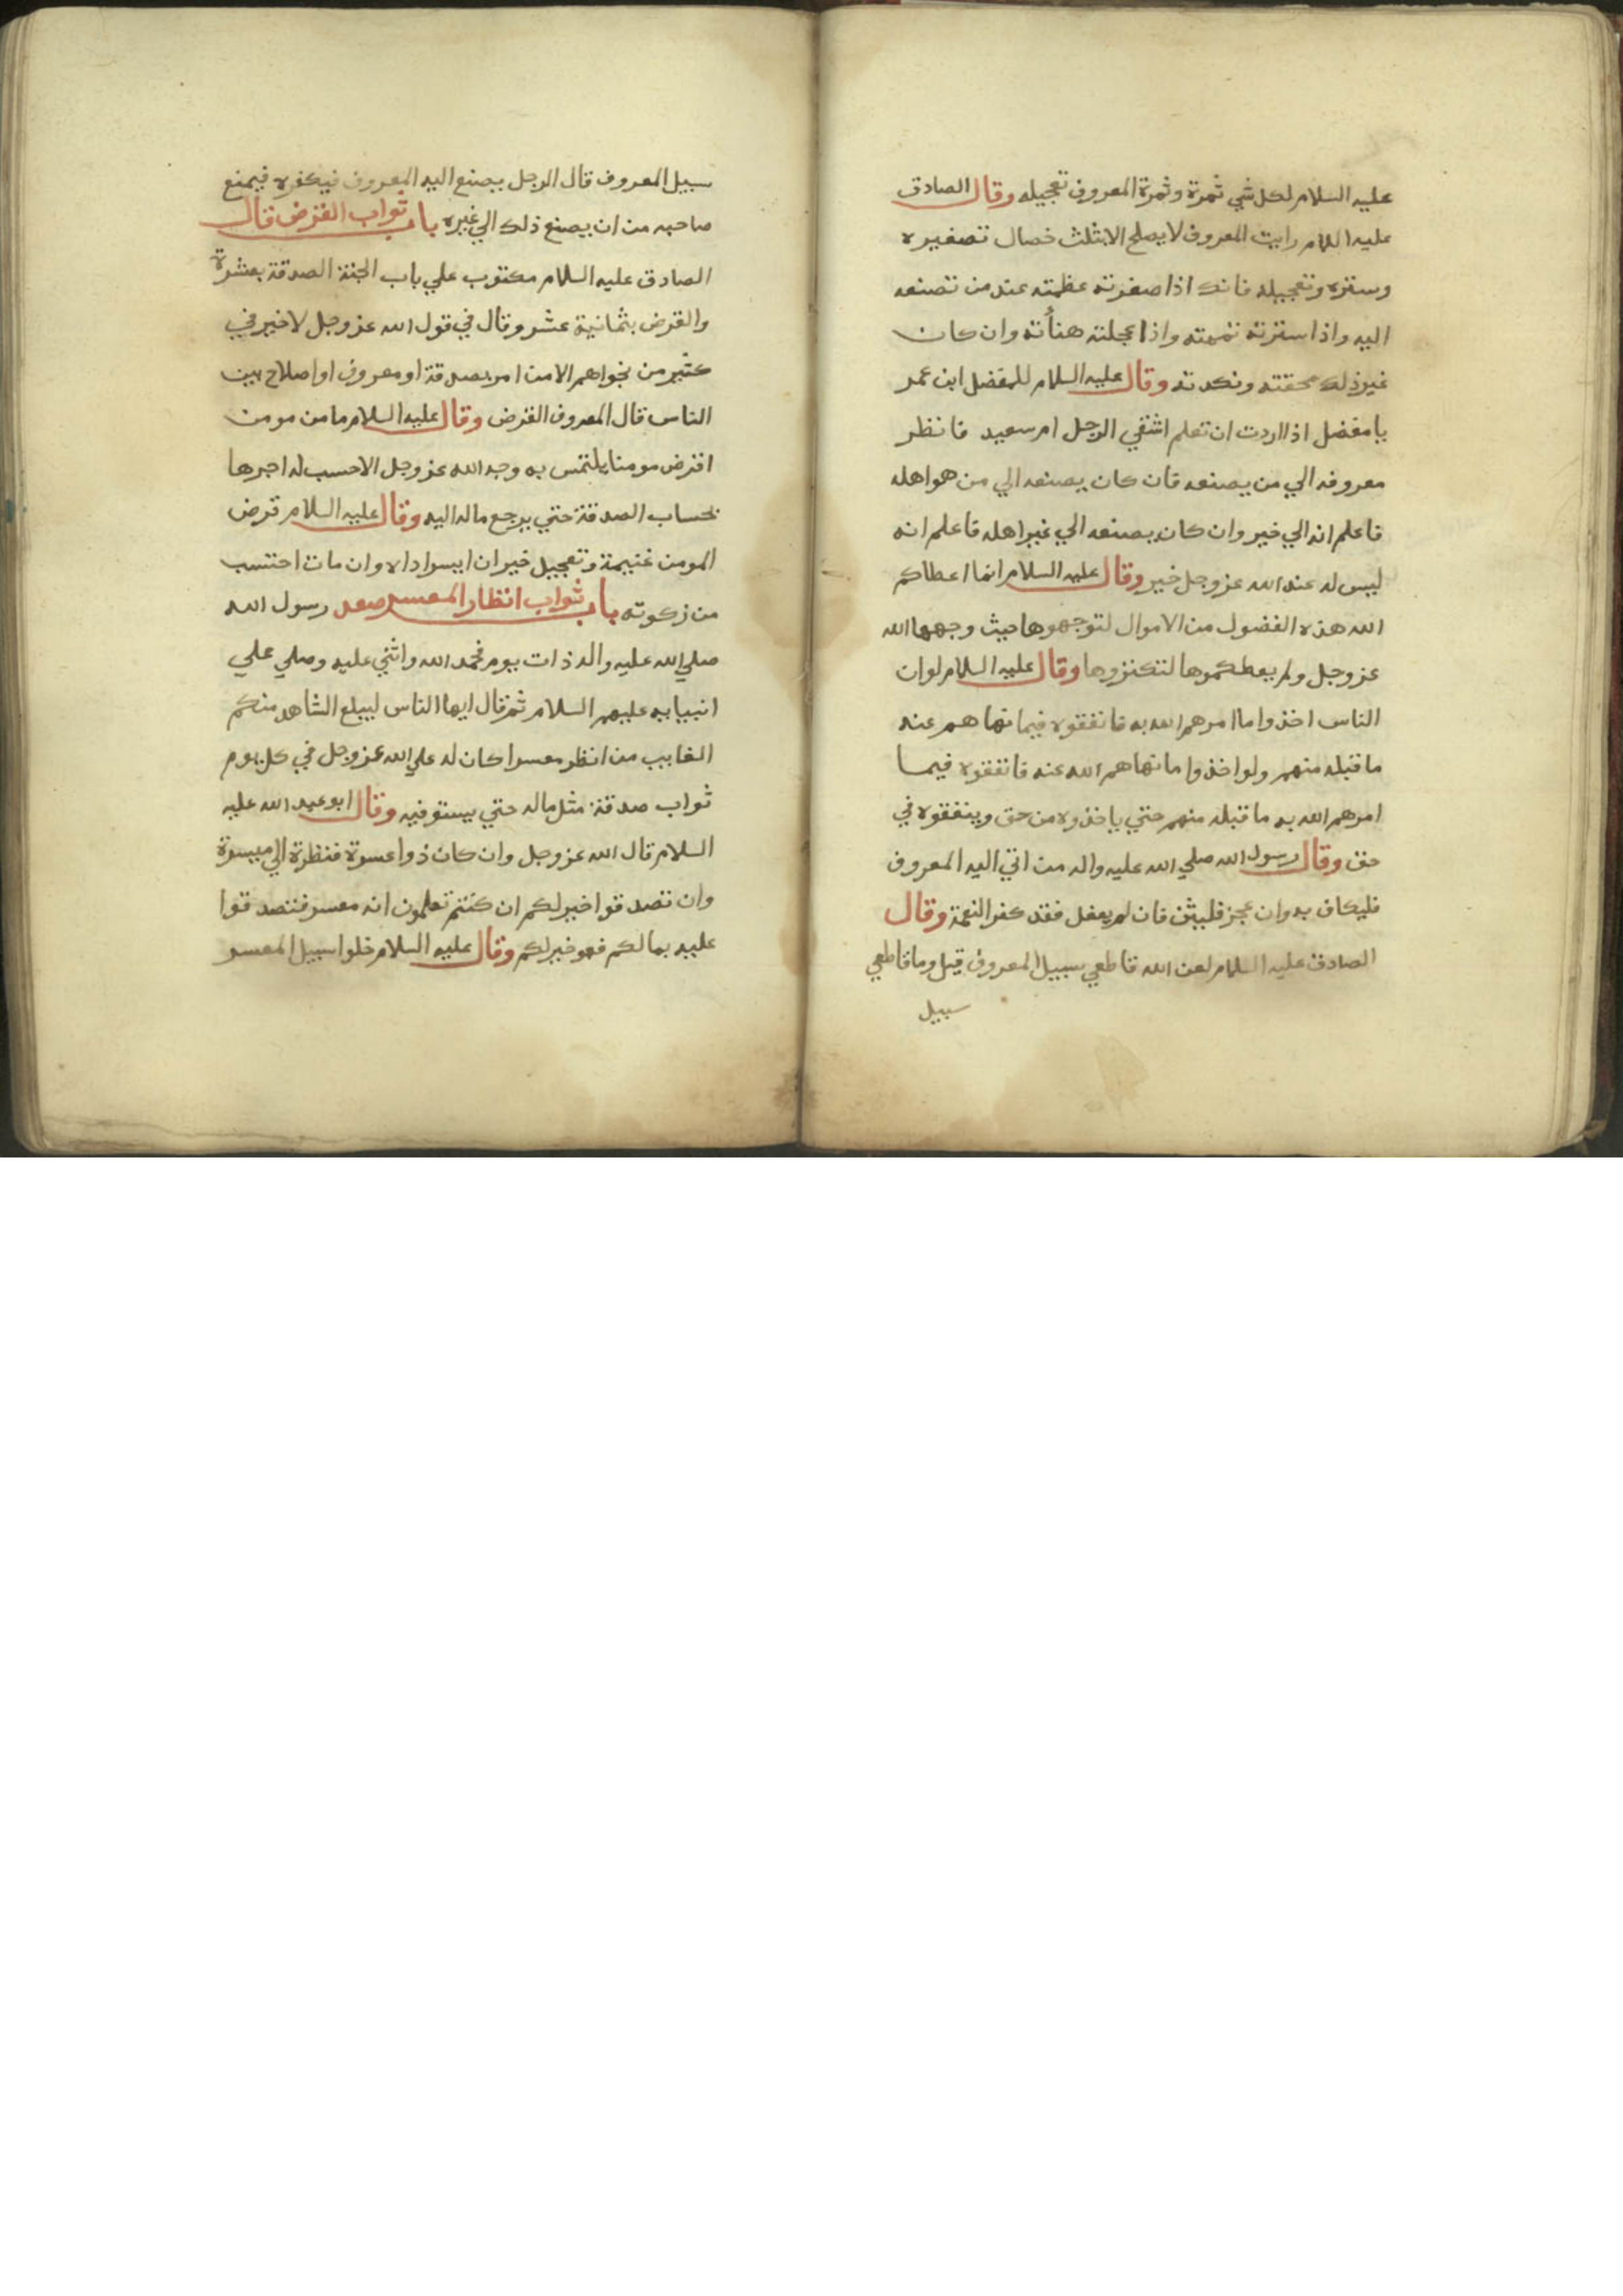 عليه السلام لكل شي ثمرة وثمرة المعروف تعجيله وقال الصادق
عليه اللام رايت المعروف لا يصلح الا بثلث خصال تصغيره
وستره وتعجيله فانك اذا صغرته عظمته عند من تصنعه
اليه واذا سترته تممته واذا عجلته هنأته وان كان
غير ذلك محقته ونكدته وقال عليه السلام للمفضل ابن عمر
يا مفضل اذا اردت ان تعلم اشقي الرجل ام سعيد فانظر
معروفه الي من يصنعه فان كان يصنعه الي من هو اهله
فاعلم انه الي خير وان كان يصنعه الي غير اهله فاعلم انه
ليس له عند الله عز وجل خير وقال عليه السلام انما اعطاكم
الله هذه الفضول من الاموال لتوجهوها حيث وجهها الله
عز وجل ولم يعطكموها لتكنزوها وقال عليه السلام لو ان
الناس اخذوا ما امرهم الله به فانفقوه فيما نهاهم عنه
ما قبله منهم ولو اخذوا ما نهاهم الله عنه فانفقوه فيما
امرهم الله به ما قبله منهم حتي ياخذوه من حق وينفقوه في
حق وقال رسول الله صلي الله عليه واله من اتي اليه المعروف
فليكاف به وان عجز فليثن فان لم يفعل فقد كفر النعمة وقال
الصادق عليه السلام لعن الله قاطعي سبيل المعروف قيل وما قاطعي
سبيل
سبيل المعروف قال الرجل يصنع اليه المعروف فيكفره فيمنع
صاحبه من ان يصنع ذلك الي غيره باب ثواب القرض قال
الصادق عليه السلام مكتوب علي باب الجنة الصدقة بعشرة
والقرض بثمانية عشر وقال في قول الله عز وجل لا خير في
كثير من نجواهم الا من امر بصدقة او معروف او اصلاح بين
الناس قال المعروف القرض وقال عليه السلام ما من مومن
اقرض مومنا يلتمس به وجه الله عز وجل الا حسب له اجرها
بحساب الصدقة حتي يرجع ماله اليه وقال عليه السلام قرض
المومن غنيمة وتعجيل خير ان ايسر اداه وان مات احتسب
من زكوته باب ثواب انظار المعسر صعد رسول الله
صلي الله عليه واله ذات يوم فحمد الله واثني عليه وصلي علي
انبيايه عليهم السلام ثم قال ايها الناس ليبلغ الشاهد منكم
الغايب من انظر معسرا كان له علي الله عز وجل في كل يوم
ثواب صدقة مثل ماله حتي يستوفيه وقال ابو عبد الله عليه
السلام قال الله عز وجل وان كان ذوا عسرة فنظرة الي ميسرة
وان تصدقوا خير لكم ان كنتم تعلمون انه معسر فتصدقوا
عليه بمالكم فهو خير لكم وقال عليه السلام خلوا سبيل المعسر